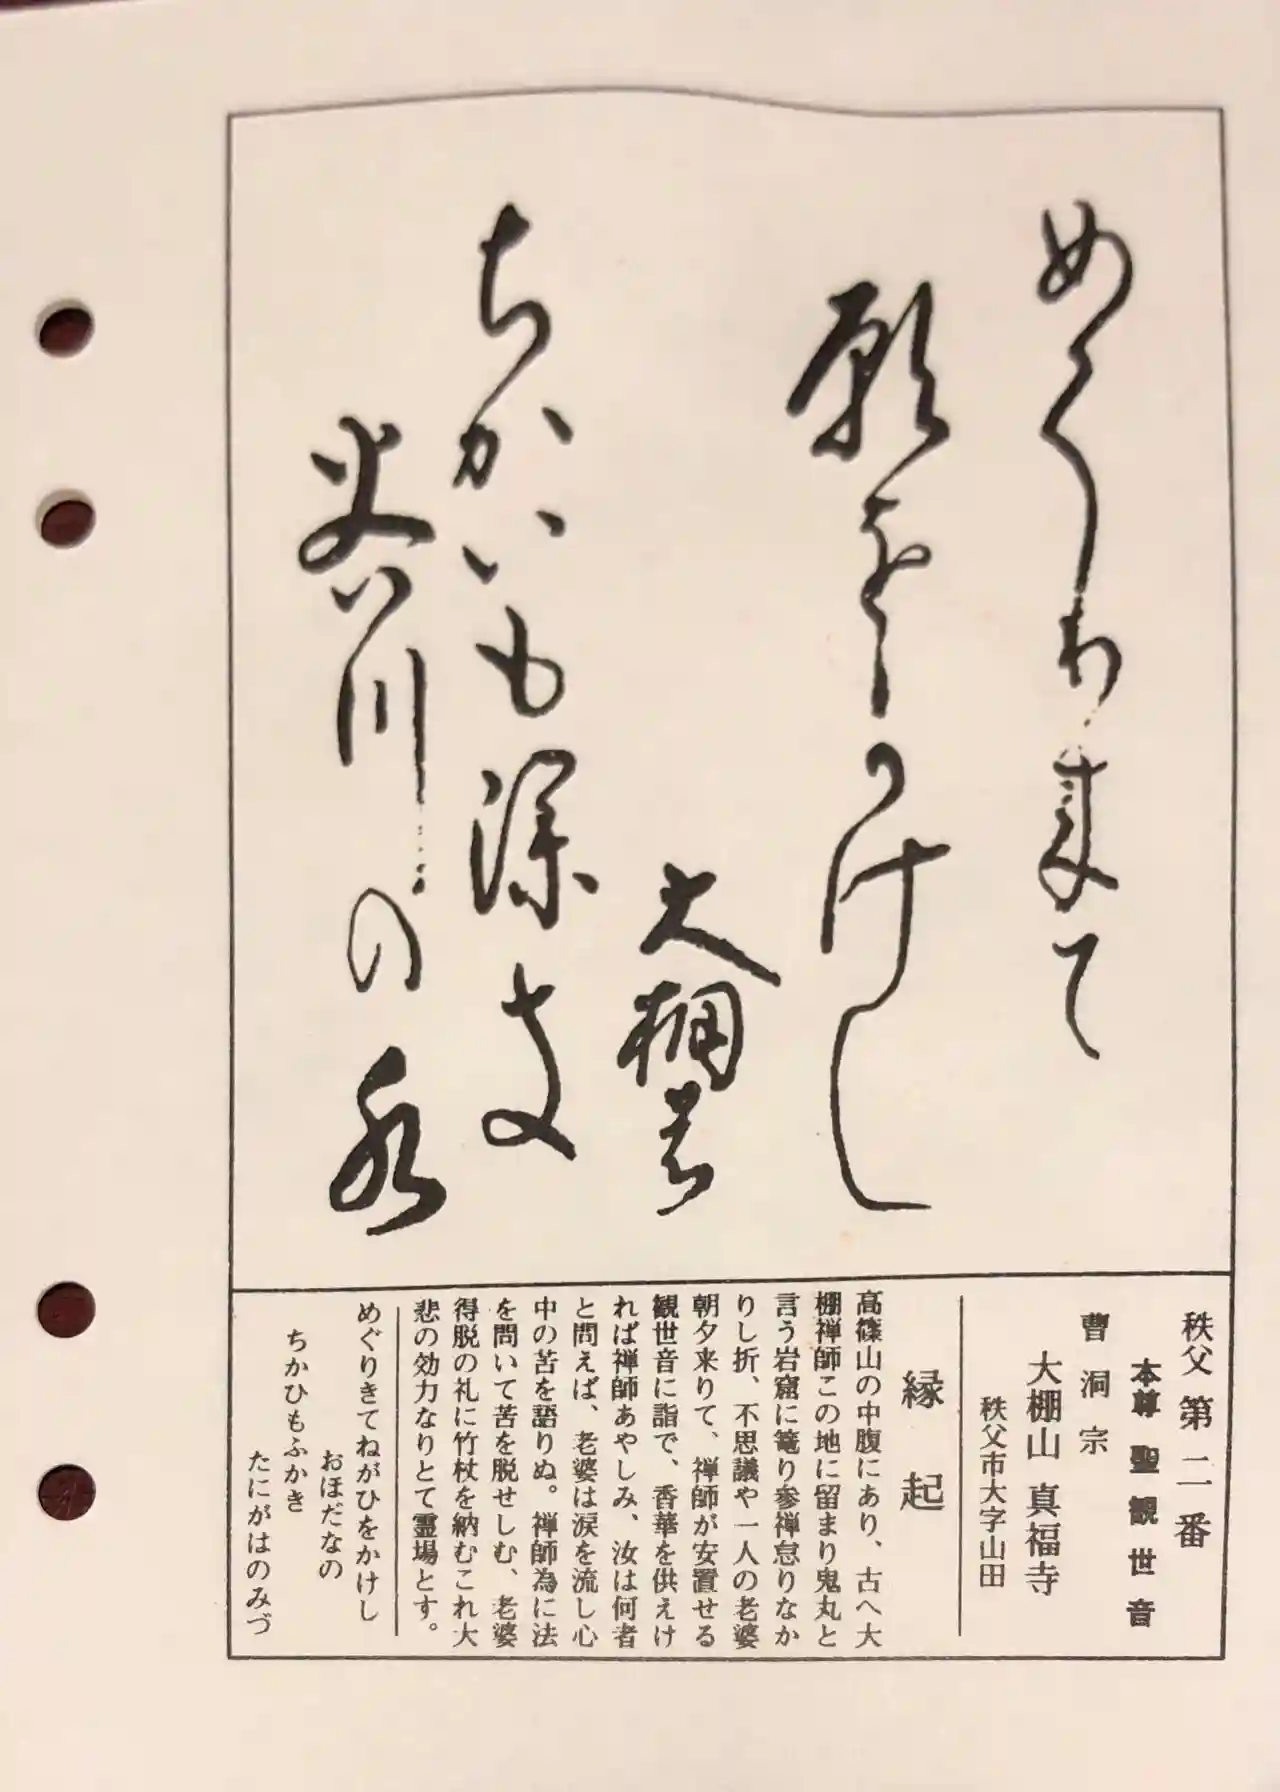 めくり来て
願をかけし
大棚の
ちかいも深き
谷川の水
秩父 第二番
本尊 聖観世音
曹洞宗
大棚山 真福寺
秩父市大字山田
縁起
高篠山の中腹にあり、古へ大
棚禅師この地に留まり鬼丸と
言う岩窟に篭り参禅怠りなか
りし折、不思議や一人の老婆
朝夕来りて、禅師が安置せる
観世音に詣で、香華を供えけ
れば禅師あやしみ、汝は何者
と問えば、老婆は涙を流し心
中の苦を語りぬ。禅師為に法
を問いて苦を脱せしむ、老婆
得脱の礼に竹杖を納むこれ大
悲の効力なりとて霊場とす。
めぐりきてねがひをかけし
おほだなの
ちかひもふかき
たにがはのみづ